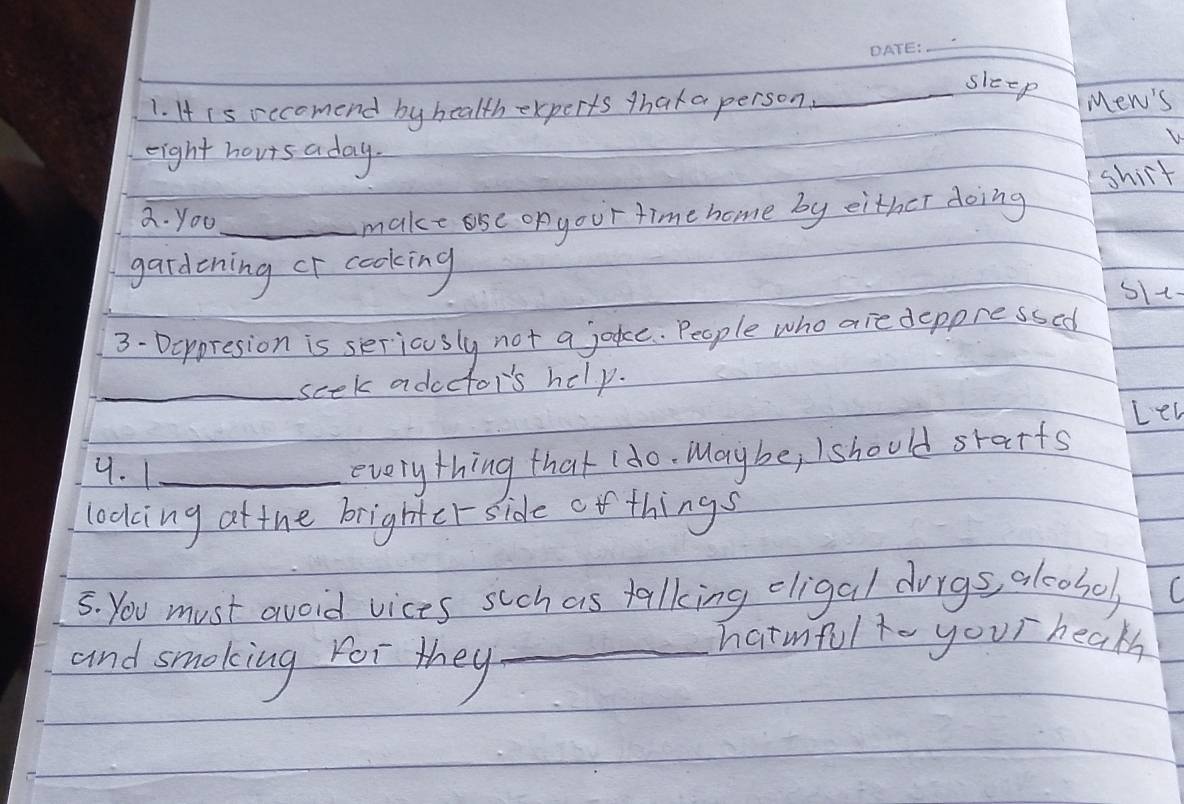 DATE:
1. It is recomend by health experts that a person ________ sleep
eight hours a day.
2. You ________ make use on your time home by either doing
gardening or cooking
3. Deppresion is seriously not a joke. People who are deppressed
________ seek a doctor's help.
4. I ________ everything that I do. Maybe, I should starts
looking at the brighter side of things
5. You must avoid vices such as talking eligal durgs, alcohol,
and smoking For they ________ harmful to your health
Men's
shirt